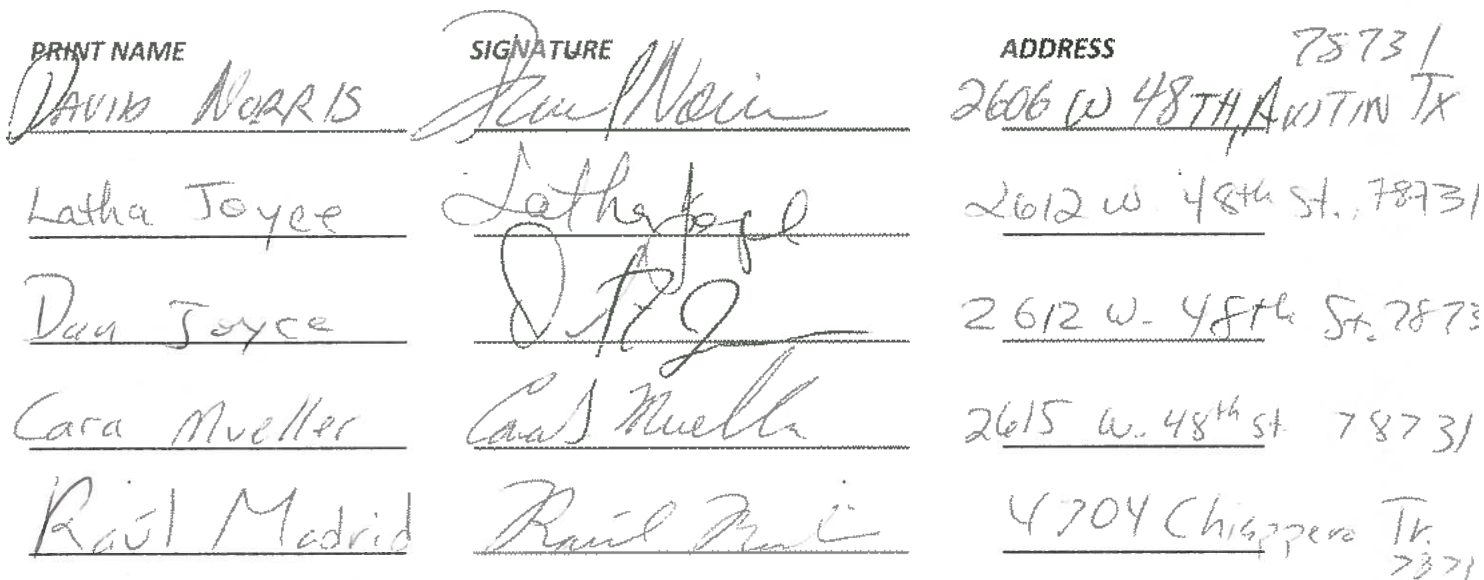 PRINT NAME SIGNATURE ADDRESS 78731
DAVID NORRIS David Norris 2606 W 48TH, AUSTIN TX
Latha Joyce Latha Joyce 2612 W. 48th St., 78731
Dan Joyce 2612 W. 48th St. 7873
Cara Mueller Cara Mueller 2615 W. 48th St 78731
Raúl Madrid Raúl 4704 Chiappero Tr.
7873